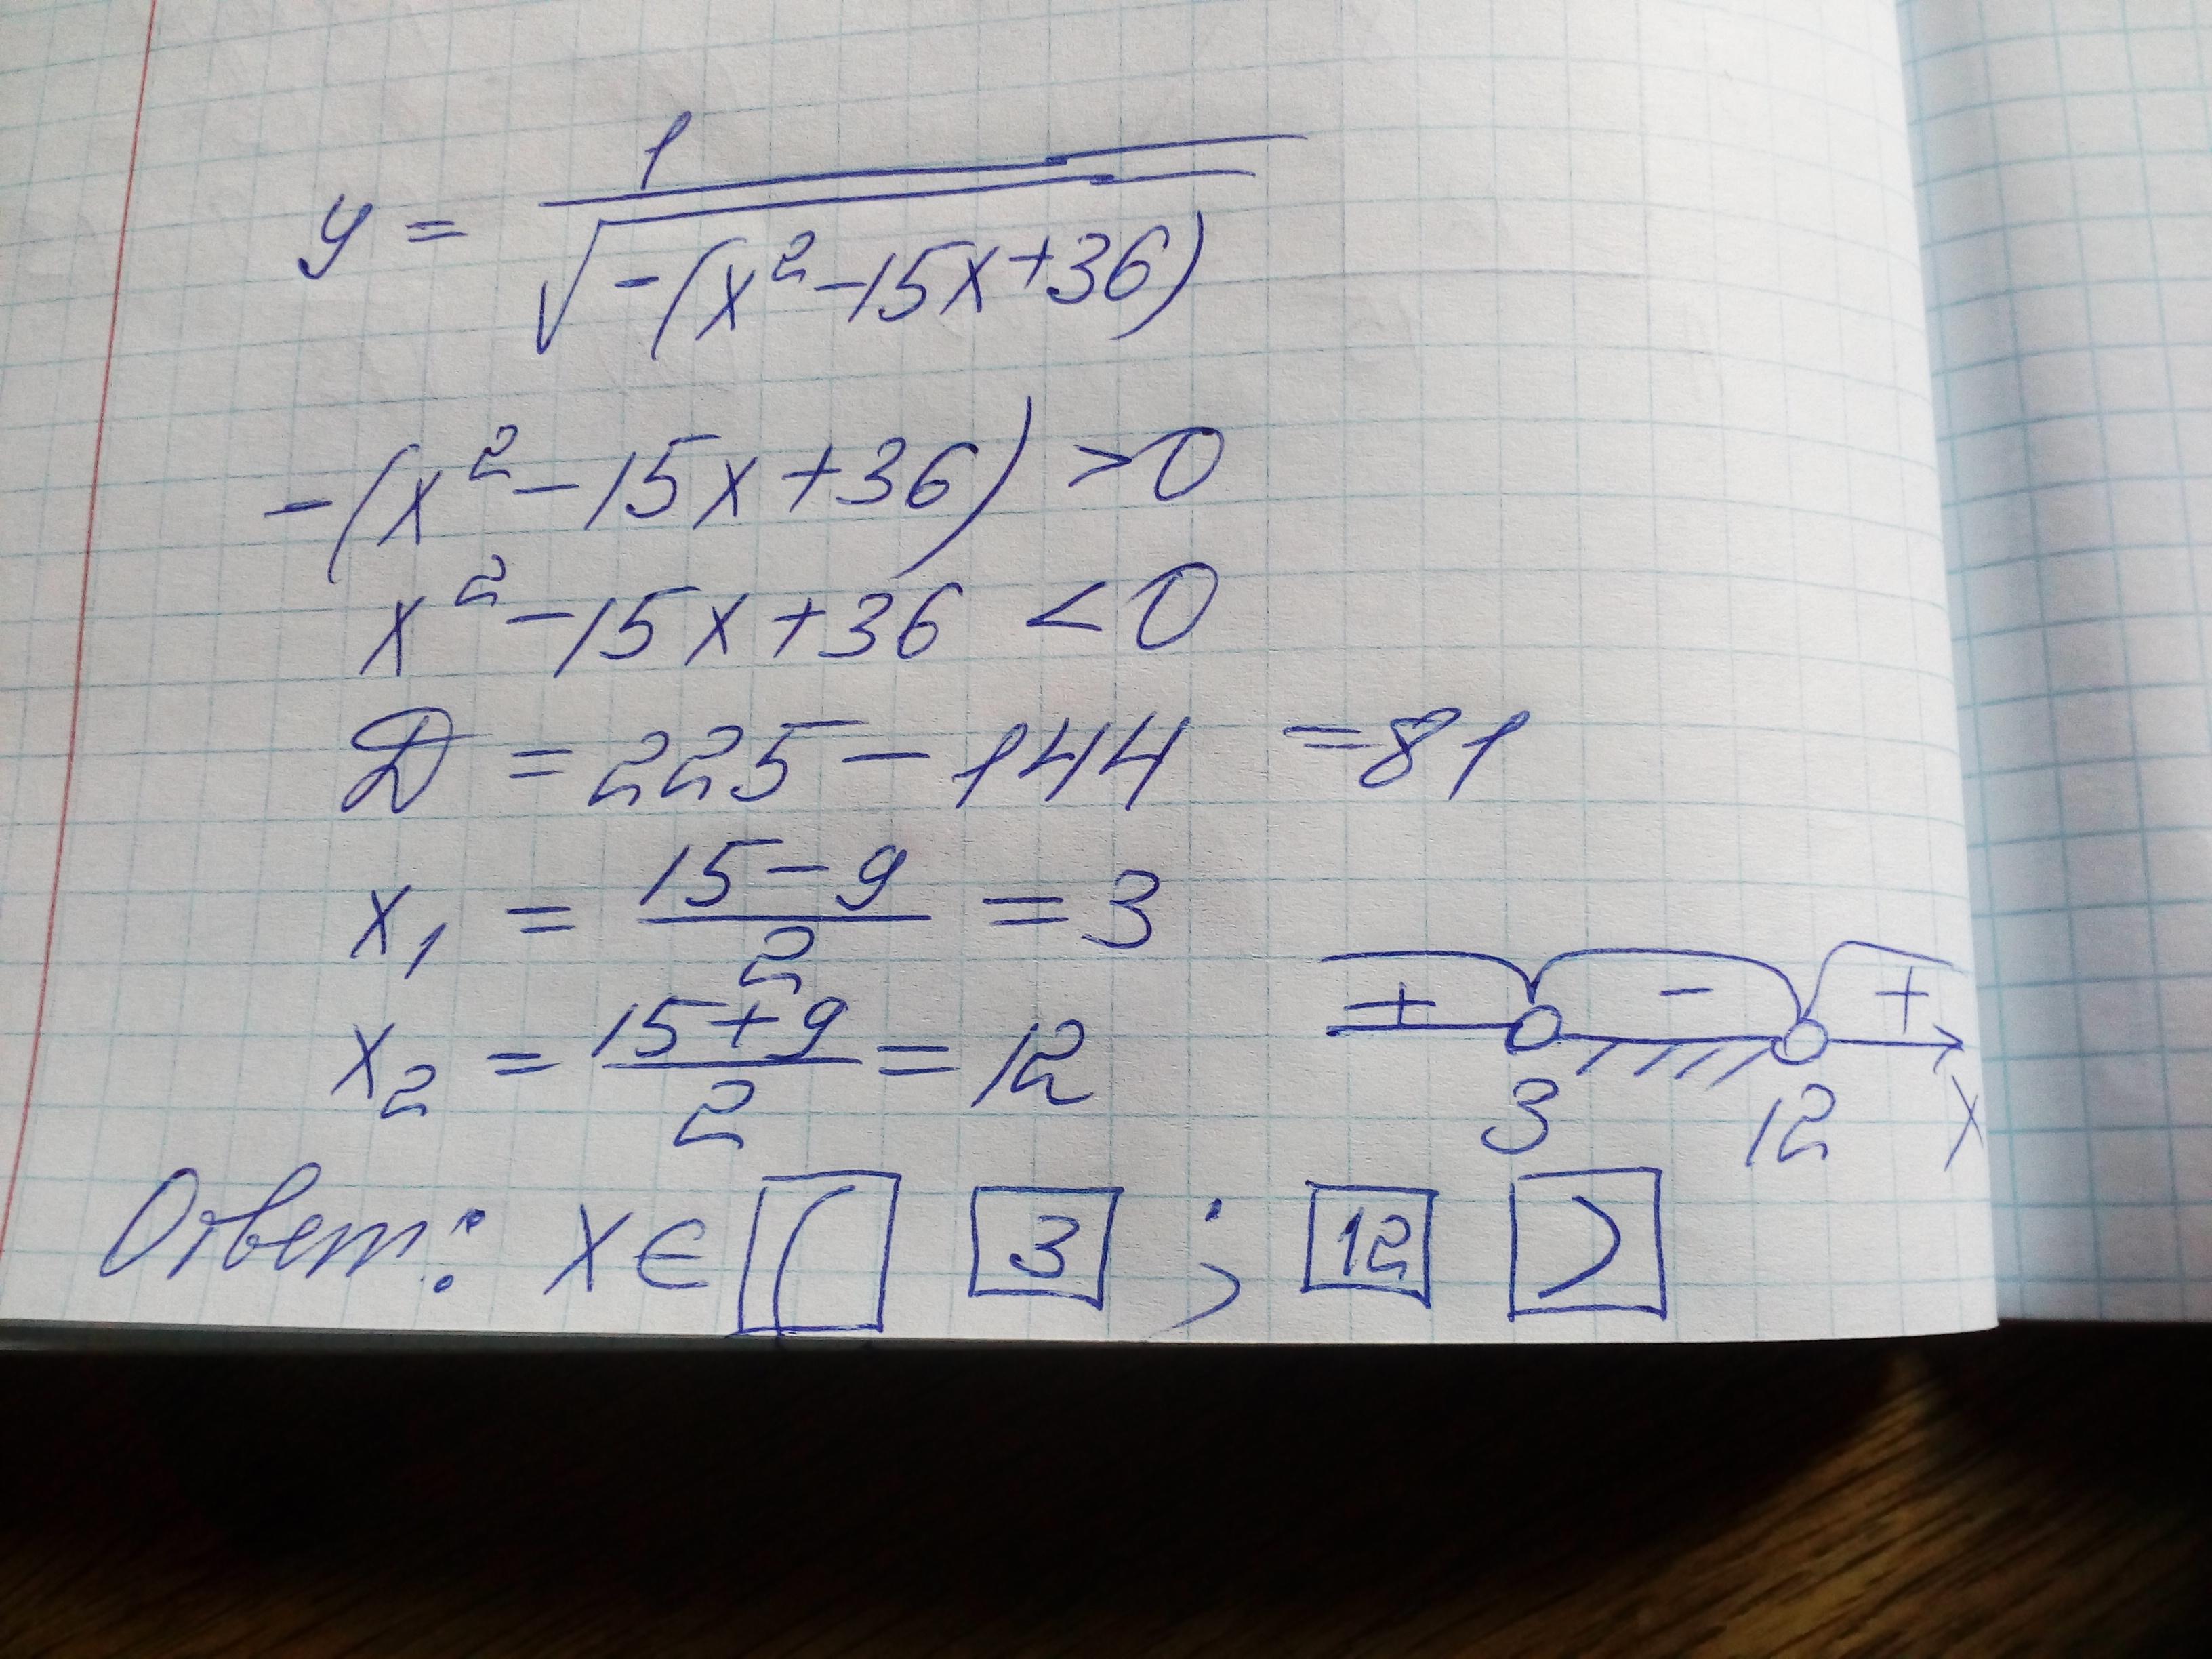 y = 1 / √(-(x² - 15x + 36))
-(x² - 15x + 36) > 0
x² - 15x + 36 < 0
D = 225 - 144 = 81
x₁ = (15 - 9) / 2 = 3
x₂ = (15 + 9) / 2 = 12
+ - +
3 12 x
Ответ: x ∈ ( 3 ; 12 )